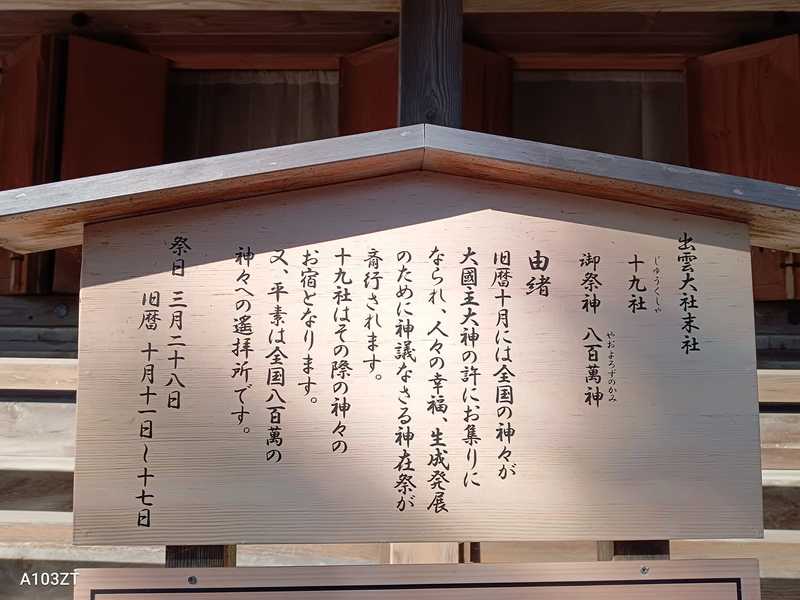 出雲大社末社
じゅうくしゃ
十九社
やおよろずのかみ
御祭神 八百萬神
由緒
旧暦十月には全国の神々が
大國主大神の許にお集りに
なられ、人々の幸福、生成発展
のために神議なさる神在祭が
斎行されます。
十九社はその際の神々の
お宿となります。
又、平素は全国八百萬の
神々への遙拝所です。
祭日 三月二十八日
旧暦 十月十一日～十七日
A103ZT